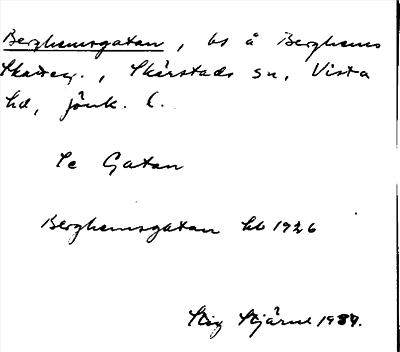 Berghemsgatan, bs å Berghems
Skatteg., Skärstads sn, Vista
hd, Jönk. l.
Se Gatan
Berghemsgatan hb 1926
Stig Stjärne 1937.